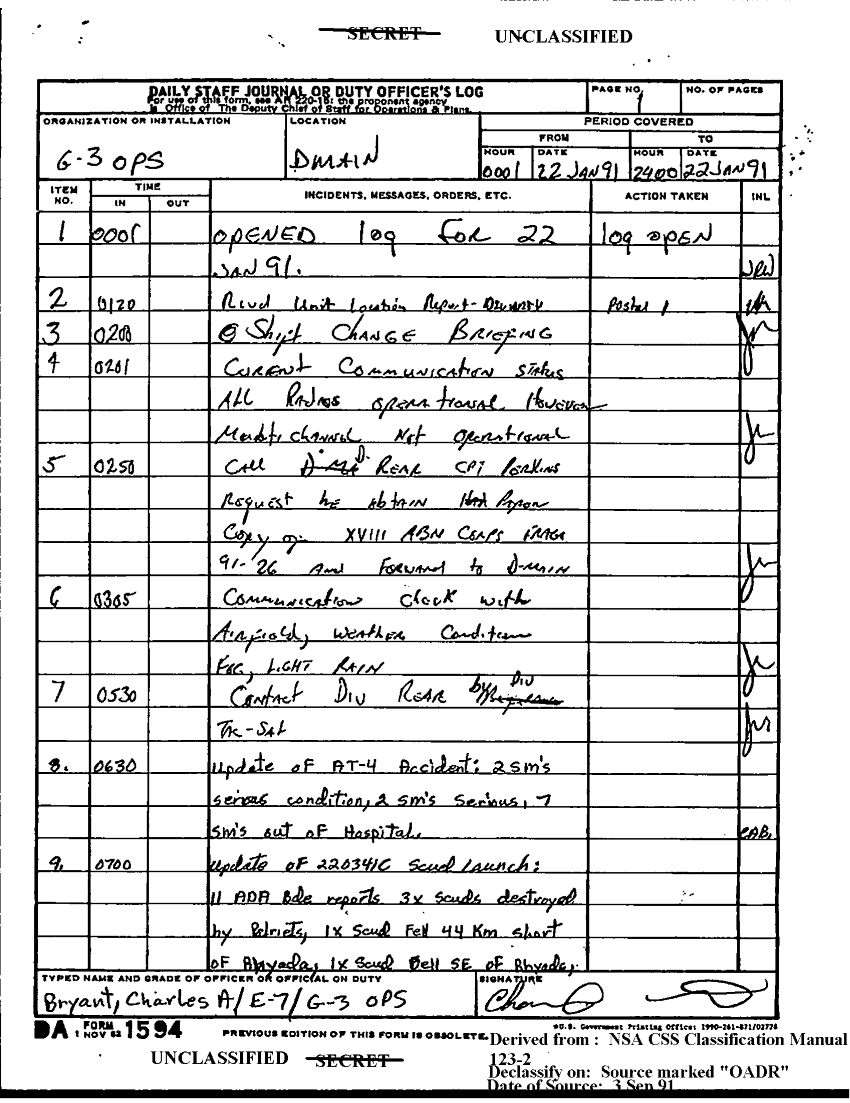 SECRET UNCLASSIFIED
DAILY STAFF JOURNAL OR DUTY OFFICER'S LOG
For use of this form, see AR 220-15; the proponent agency
is Office of The Deputy Chief of Staff for Operations & Plans.
PAGE NO. 1
NO. OF PAGES
ORGANIZATION OR INSTALLATION
G-3 OPS
LOCATION
DMAIN
PERIOD COVERED
FROM TO
HOUR DATE HOUR DATE
0001 22 JAN 91 2400 22 JAN 91
ITEM NO. TIME INCIDENTS, MESSAGES, ORDERS, ETC. ACTION TAKEN INL
IN OUT
1 0001 OPENED log FOR 22 log OPEN
JAN 91.
2 0120 Rcvd Unit Location Report- Posted
3 0200 Shift CHANGE BRIEFING
4 0201 CURRENT COMMUNICATION STATUS
ALL RADIOS OPERATIONAL. However
channel Not Operational
5 0250 CALL D. REAR CPT PERKINS
REQUEST he obtain
Copy of XVIII ABN CORPS FRAGO
91-26 and FORWARD to D-MAIN
6 0305 COMMUNICATION Check with
Airfield, WEATHER Condition
FOG, LIGHT RAIN
7 0530 CONTACT DIV REAR by DIV
TAC-SAT
8. 0630 Update OF AT-4 Accident: 2 SM's
serious condition, 2 SM's Serious, 7
SM's out of Hospital. CAB
9. 0700 Update OF 220341C Scud Launch:
11 ADA Bde reports 3x Scuds destroyed
by Patriots, 1x Scud Fell 44 Km short
OF 1x Scud SE of
TYPED NAME AND GRADE OF OFFICER OR OFFICIAL ON DUTY
Bryant, Charles A/E-7/G-3 OPS
SIGNATURE
DA FORM 1594
1 NOV 62
PREVIOUS EDITION OF THIS FORM IS OBSOLETE.
*U.S. Government Printing Office: 1990-261-871/02776
UNCLASSIFIED SECRET
Derived from : NSA CSS Classification Manual
123-2
Declassify on: Source marked "OADR"
Date of Source: 3 Sep 91